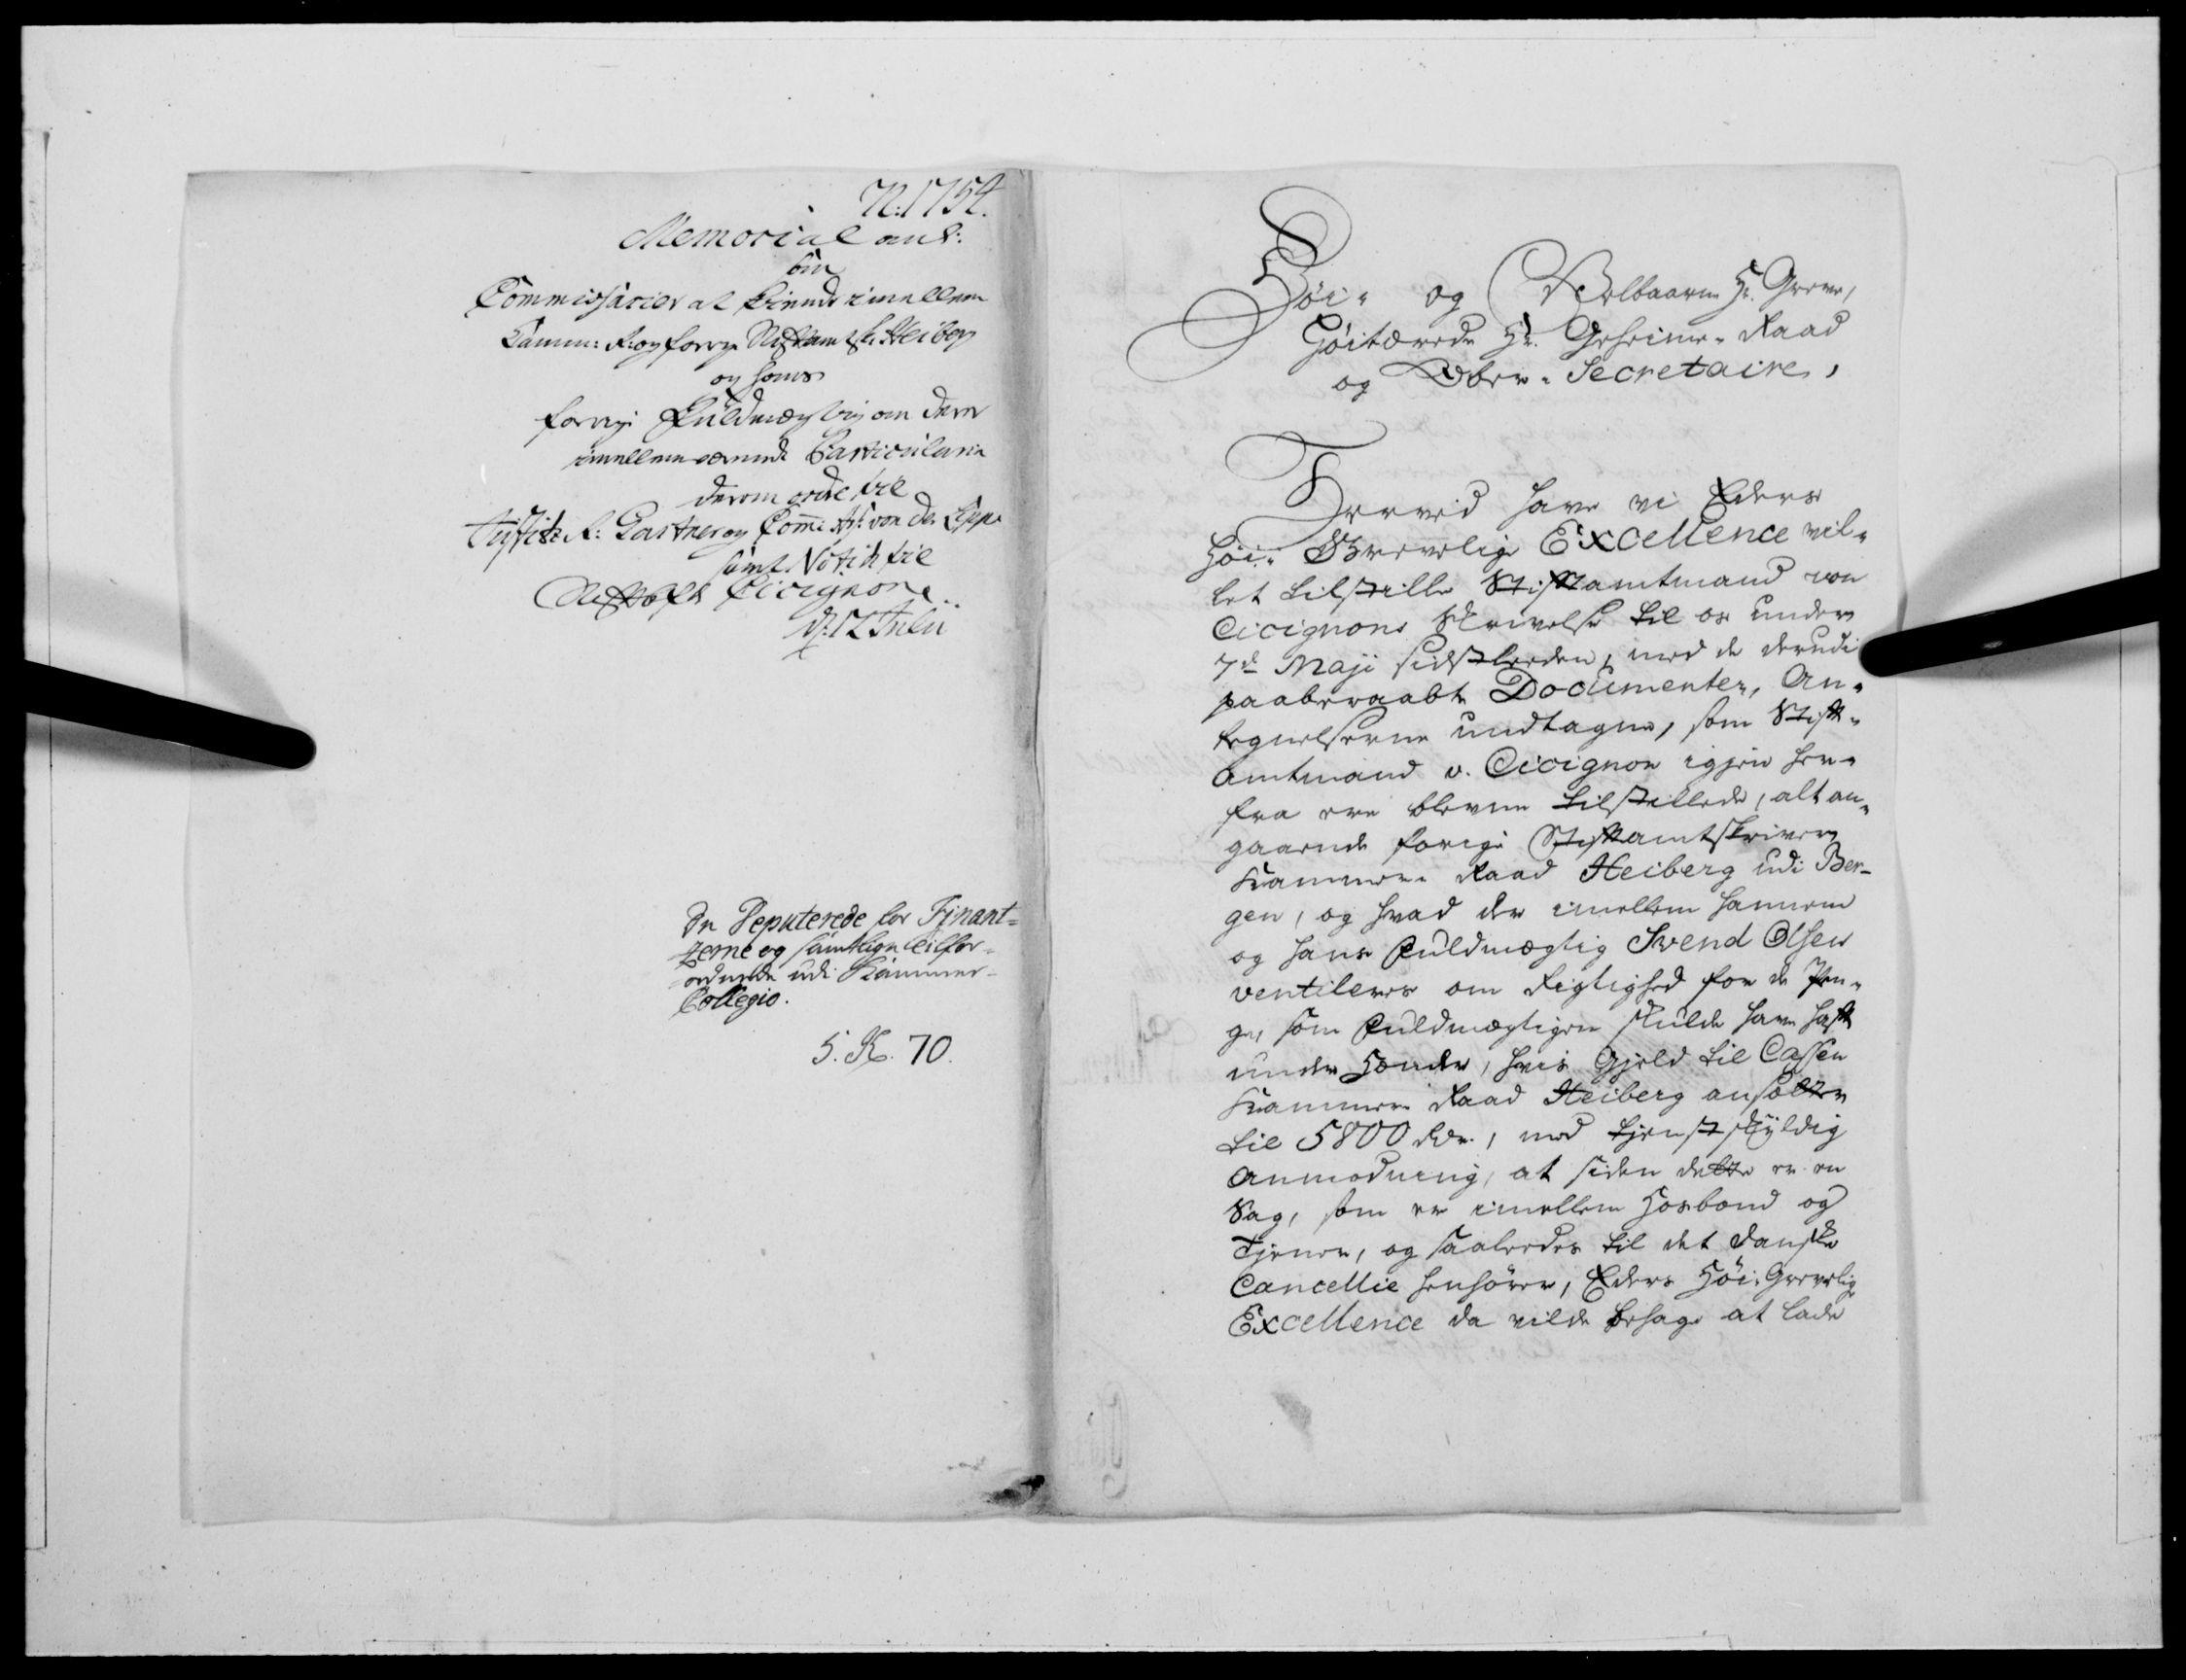 N: 1754.
Memorial anl:
om
Commissarier at kiende imellem
Camm: R: og forrige Stiftamtsk: Heiberg
og hans
forrige Fuldmægtig om deres
imellemværende Particulaire
derom ordre til
Justitz R: Gartner og Comm: Ass: von der Lippe
samt Notitz til
Stiftbef: Cicignon.
d: 12 Julii
De Deputerede for Finant-
zerne og samtlige tilfor-
ordnede udi Kammer-
Collegio.
5. K. 70.
Høi- og Velbaarne Hr. Greve,
Høitærede Hr. Geheime-Raad
og Ober-Secretaire,
Herved have vi Eders
Høi-Grevelige Excellence vil-
let tilstille Stiftamtmand von
Cicignons Skrivelse til os under
7de Maji sidstleeden, med de derudi
paaberaabte Documenter, An-
tegnelserne undtagne, som Stift-
amtmand v. Cicignon igjen her-
fra ere blevne tilstillede, alt an-
gaaende forrige Stiftamtskriver
Kammer-Raad Heiberg udi Ber-
gen, og hvad der imellem hannem
og hans Fuldmægtig Svend Olsen
ventileres om Rigtighed for de Pen-
ge, som Fuldmægtigen skulde have haft
under Hænder, hvis Gjeld til Cassen
Kammer-Raad Heiberg ansætter
til 5800 Rdr., med tjenstskyldig
Anmodning, at siden dette er en
Sag, som er imellem Hosbond og
Tjener, og saaledes til det danske
Cancellie henhører, Eders Høi-Grevelige
Excellence da vilde behage at lade